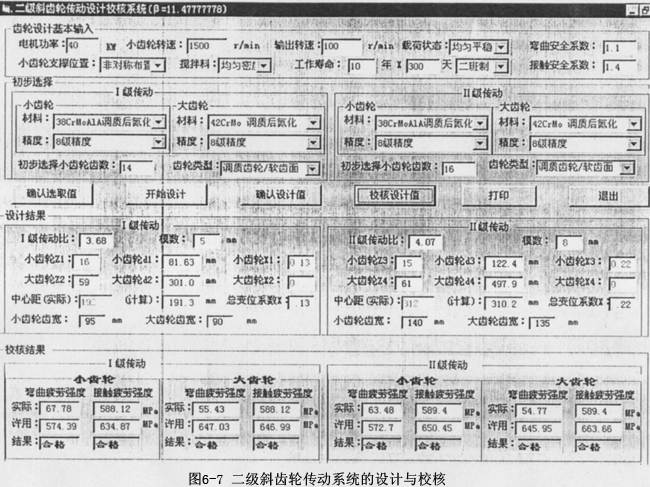 二级斜齿轮传动设计校核系统(β=11.47777778)
齿轮设计基本输入
电机功率: 40 KW 小齿轮转速: 1500 r/min 输出转速: 100 r/min 载荷状态: 均匀平稳 弯曲安全系数: 1.1
小齿轮支撑位置: 非对称布置 搅拌料: 均匀密度 工作寿命: 10 年 X 300 天 二班制 接触安全系数: 1.4
初步选择
I级传动 II级传动
小齿轮 大齿轮 小齿轮 大齿轮
材料: 38CrMoAlA调质后氮化 材料: 42CrMo 调质后氮化 材料: 38CrMoAlA调质后氮化 材料: 42CrMo 调质后氮化
精度: 8级精度 精度: 8级精度 精度: 8级精度 精度: 8级精度
初步选择小齿轮齿数: 14 齿轮类型: 调质齿轮/软齿面 初步选择小齿轮齿数: 16 齿轮类型: 调质齿轮/软齿面
确认选取值 开始设计 确认设计值 校核设计值 打印 退出
设计结果
I级传动 II级传动
I级传动比: 3.68 模数: 5 mm II级传动比: 4.07 模数: 8 mm
小齿轮Z1: 16 小齿轮d1: 81.63 mm 小齿轮X1: 0.13 小齿轮Z3: 15 小齿轮d3: 122.4 mm 小齿轮X3: 0.22
大齿轮Z2: 59 大齿轮d2: 301.0 mm 大齿轮X2: 0 大齿轮Z4: 61 大齿轮d4: 497.9 mm 大齿轮X4: 0
中心距(实际): (计算): 191.3 mm 总变位系数X: .13 中心距(实际): 312 (计算): 310.2 mm 总变位系数X: .22
小齿轮齿宽: 95 mm 大齿轮齿宽: 90 mm 小齿轮齿宽: 140 mm 大齿轮齿宽: 135 mm
校核结果
I级传动 II级传动
小齿轮 大齿轮 小齿轮 大齿轮
弯曲疲劳强度 接触疲劳强度 弯曲疲劳强度 接触疲劳强度 弯曲疲劳强度 接触疲劳强度 弯曲疲劳强度 接触疲劳强度
实际: 67.78 588.12 MPa 实际: 55.43 588.12 MPa 实际: 63.48 589.4 MPa 实际: 54.77 589.4 MPa
许用: 574.39 634.87 MPa 许用: 647.03 646.99 MPa 许用: 572.7 650.45 MPa 许用: 645.95 663.66 MPa
结果: 合格 合格 结果: 合格 合格 结果: 合格 合格 结果: 合格 合格
图6-7 二级斜齿轮传动系统的设计与校核